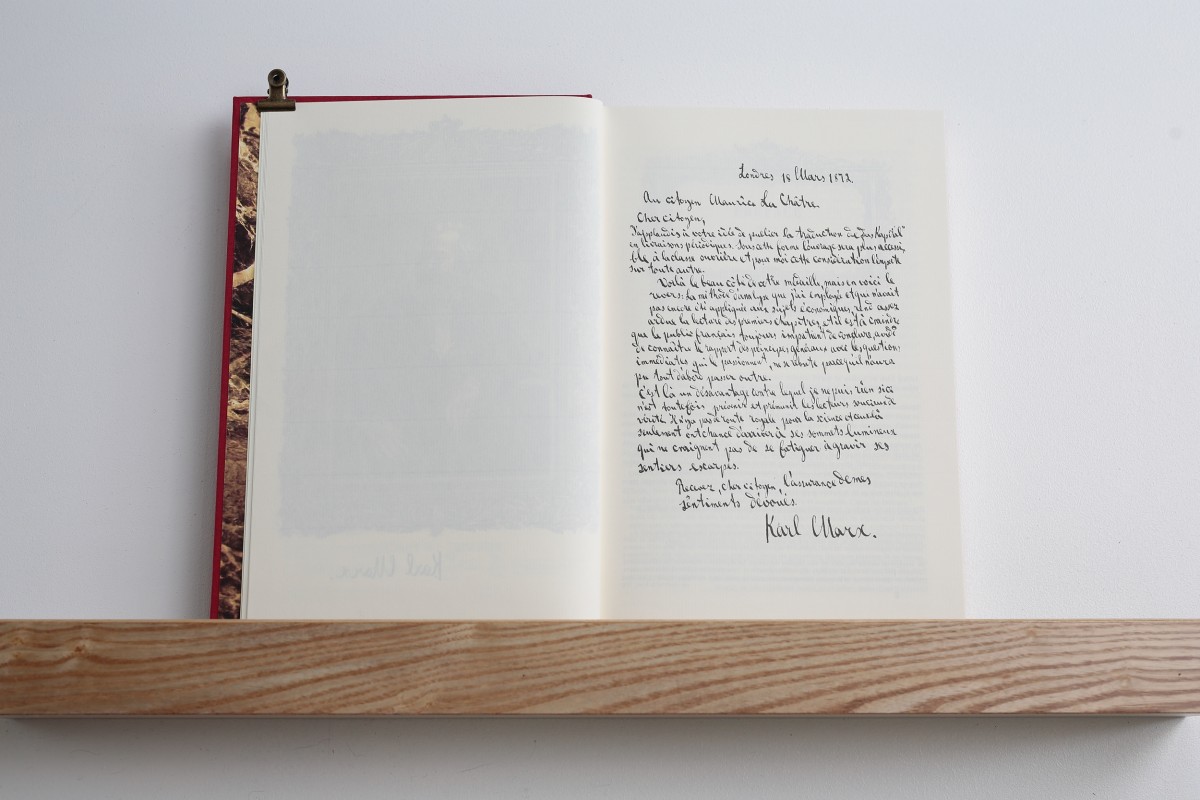 Londres 18 Mars 1872.
Au citoyen Maurice La Châtre.
Cher citoyen,
J'applaudis à votre idée de publier la traduction de "Das Kapital"
en livraisons périodiques. Sous cette forme l'ouvrage sera plus accessi-
ble à la classe ouvrière et pour moi cette considération l'emporte
sur toute autre.
Voilà le beau côté de votre médaille, mais en voici le
revers: La méthode d'analyse que j'ai employée et qui n'avait
pas encore été appliquée aux sujets économiques, rend assez
ardue la lecture des premiers chapitres, et il est à craindre
que le public français toujours impatient de conclure, avide
de connaître le rapport des principes généraux avec les questions
immédiates qui le passionnent, ne se rebute parce qu'il n'aura
pu tout d'abord passer outre.
C'est là un désavantage contre lequel je ne puis rien si ce
n'est toutefois prévenir et prémunir les lecteurs soucieux de
vérité. Il n'y a pas de route royale pour la science et ceux-là
seulement ont chance d'arriver à ses sommets lumineux
qui ne craignent pas de se fatiguer à gravir ses
sentiers escarpés.
Recevez, cher citoyen, l'assurance de mes
sentiments dévoués.
Karl Marx.
Karl Marx.